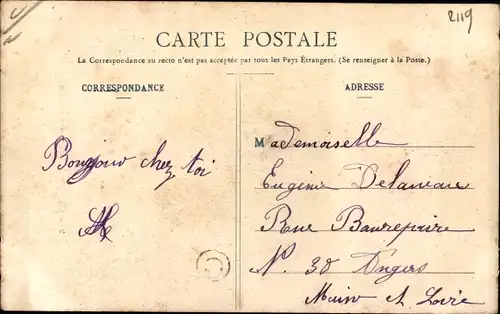 2119
CARTE POSTALE
La Correspondance au recto n'est pas acceptée par tous les Pays Étrangers. (Se renseigner à la Poste.)
CORRESPONDANCE
ADRESSE
Mademoiselle
Bonjour chez toi
Eugénie Delaveau
Rue Baurepaire
N. 38 Angers
Maine et Loire